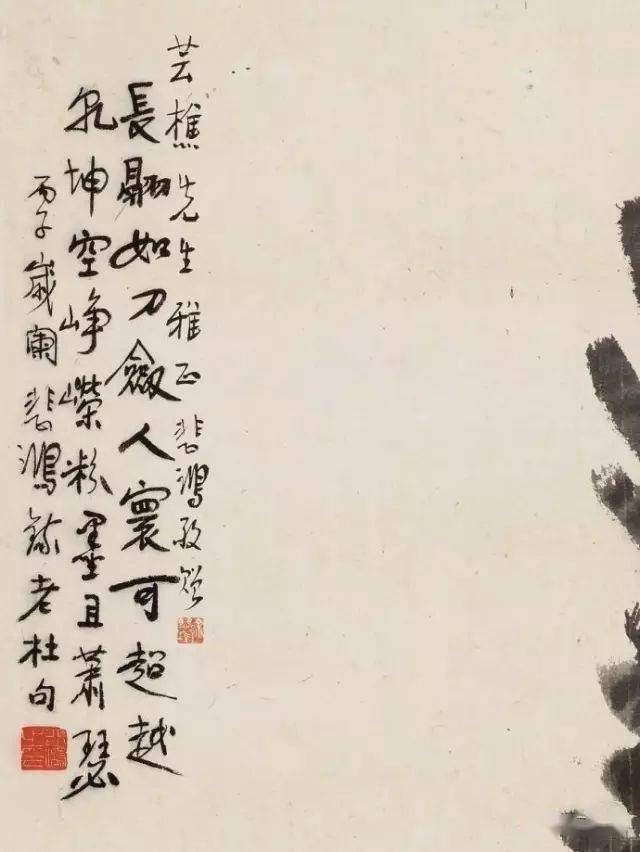 芸樵先生雅正悲鴻敬贈
長翮如刀劍人寰可超越
乳坤空崢嶸粉墨且蕭瑟
丙子歲闌悲鴻錄老杜句